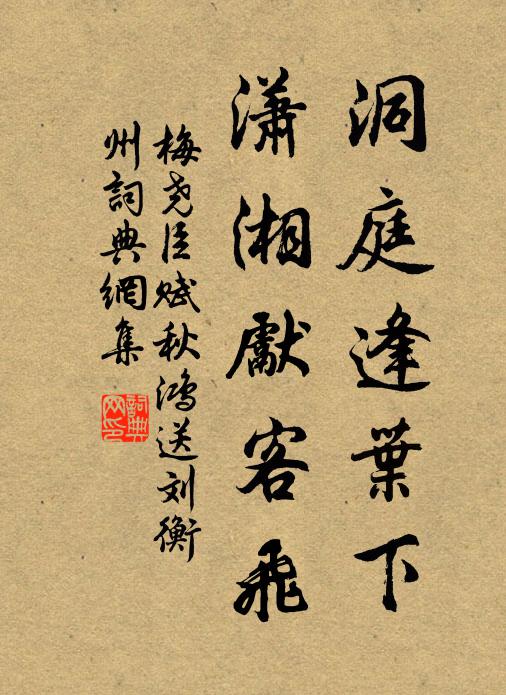 洞庭逢葉下
瀟湘獻客飛
梅尧臣赋秋鸿送刘衡
州詞典網集
詞典
网印